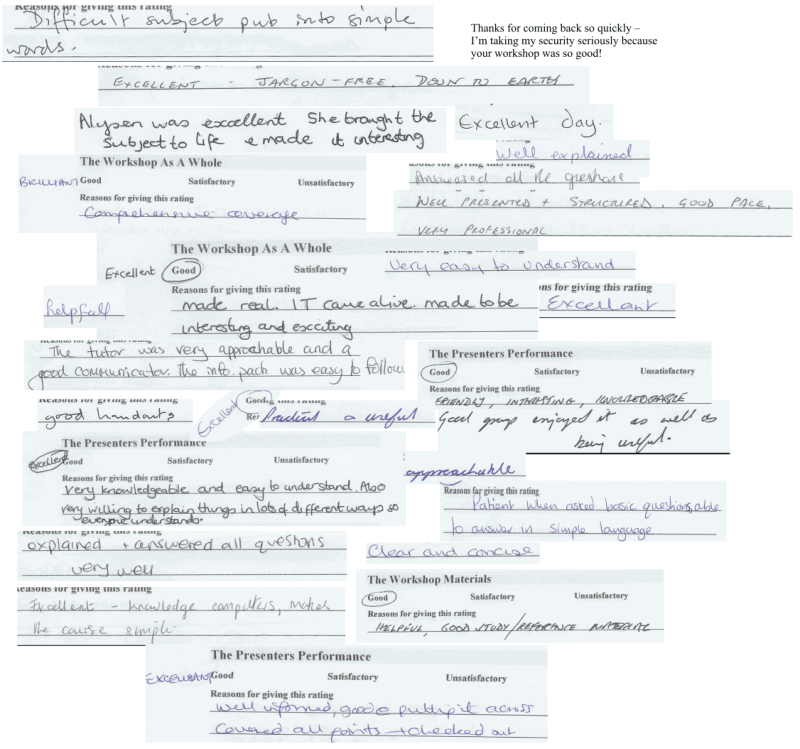 Reasons for giving this rating
Difficult subject put into simple
words.
Thanks for coming back so quickly –
I'm taking my security seriously because
your workshop was so good!
EXCELLENT - JARGON-FREE, DOWN TO EARTH
Alysen was excellent She brought the
subject to life & made it interesting
Excellent day.
Well explained
The Workshop As A Whole
BRILLIANT Good Satisfactory Unsatisfactory
Reasons for giving this rating
Comprehensive coverage
Reasons for giving this rating
Answered all the questions
WELL PRESENTED + STRUCTURED, GOOD PACE,
VERY PROFESSIONAL
The Workshop As A Whole
Excellent Good Satisfactory
Reasons for giving this rating
made real. IT came alive. made to be
interesting and exciting
Very easy to understand
helpfull
ons for giving this rating
Excellant
Reasons for giving this rating
The tutor was very approachable and a
good communicator. The info. pack was easy to follow.
The Presenters Performance
Good Satisfactory Unsatisfactory
Reasons for giving this rating
FRIENDLY, INTERESTING, KNOWLEDGEABLE
Reasons for giving this rating
good handouts
Excellent Good
Practical & useful
Good group enjoyed it as well as
being useful.
The Presenters Performance
Excellent Good Satisfactory Unsatisfactory
Reasons for giving this rating
Very knowledgeable and easy to understand. Also
very willing to explain things in lots of different ways so
everyone understands.
approachable
Reasons for giving this rating
Patient when asked basic questions, able
to answer in simple language
Reasons for giving this rating
explained + answered all questions
very well
Clear and concise
Reasons for giving this rating
Excellent - knowledge computers, makes
the course simple.
The Workshop Materials
Good Satisfactory Unsatisfactory
Reasons for giving this rating
HELPFUL, GOOD STUDY/REFERENCE MATERIAL
The Presenters Performance
EXCELLANT Good Satisfactory Unsatisfactory
Reasons for giving this rating
Well informed, good @ putting it across
Covered all points + checked out